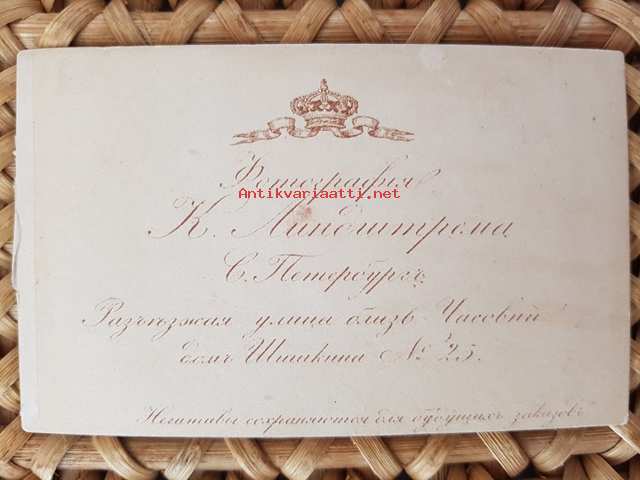 Фотографія
Antikvariaatti.net
К. Линдштрома
С. Петербургъ
Разъѣзжая улица близъ Часовни
домъ Шишкина № 25.
Негативы сохраняются для будущихъ заказовъ